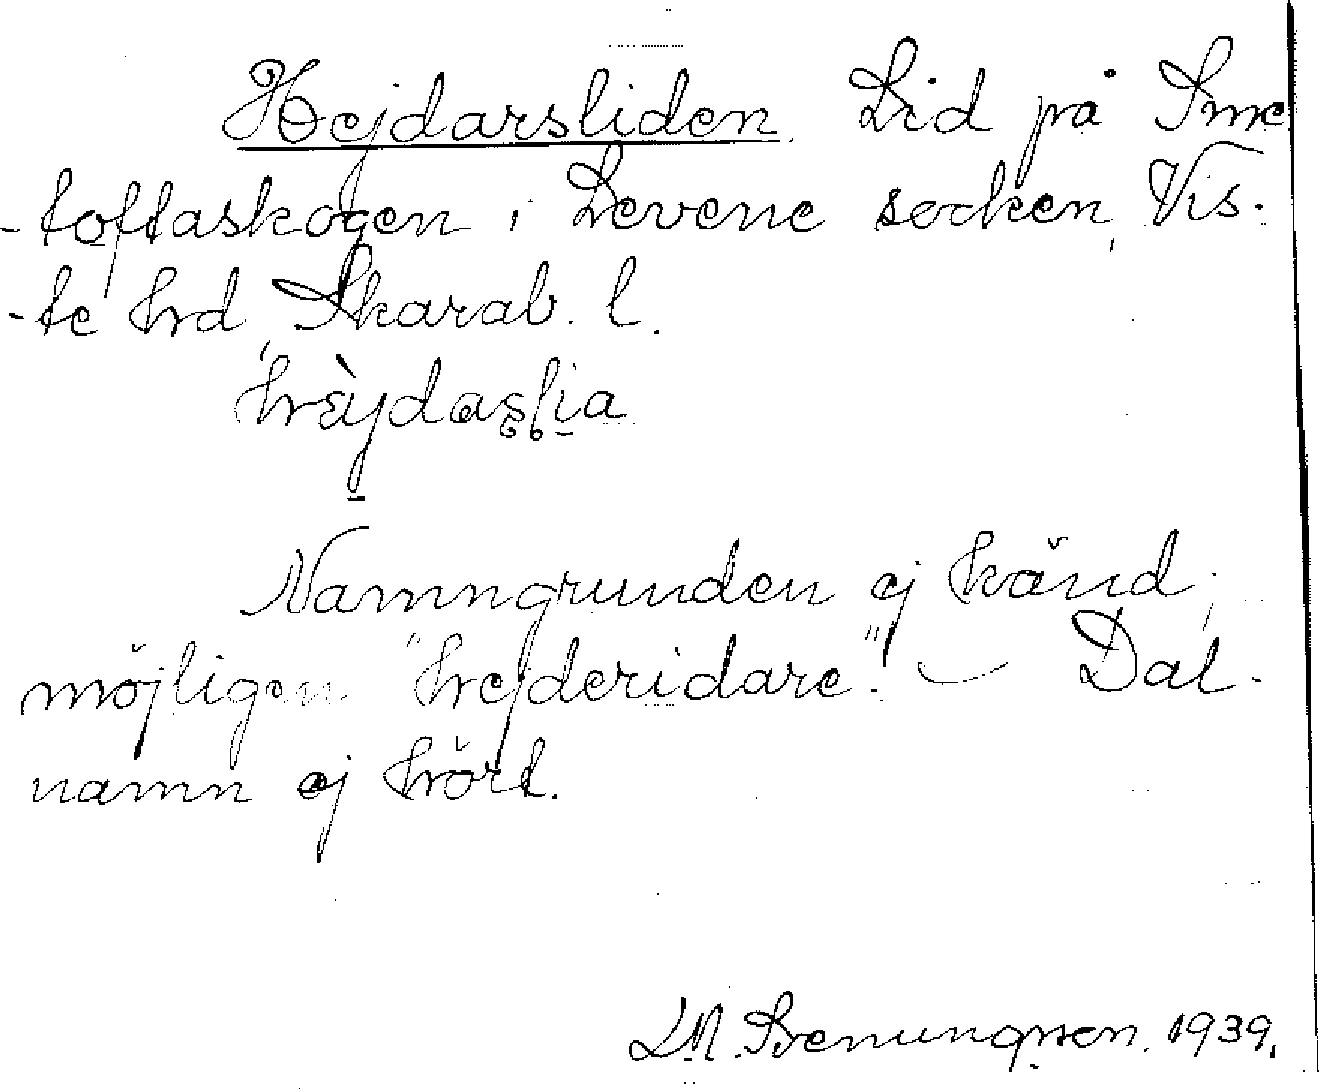 Hejdarsliden. Lid på Sme
-toftaskogen i Levene socken, Vis-
-te hrd, Skarab. l.
hɛ̀jdaslia
Namngrunden ej känd,
möjligen "hejderidare". — Dal-
namn ej hört.
L.M. Svenungsson. 1939.